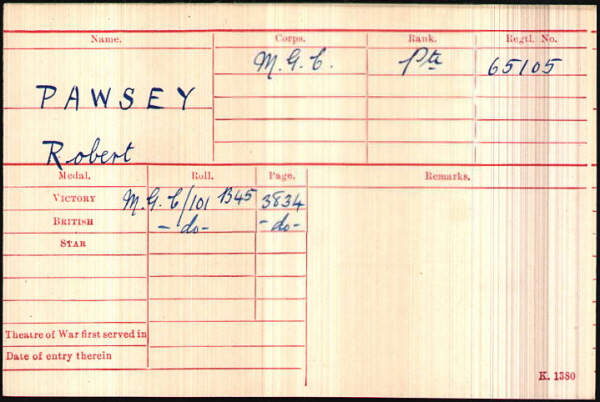 Name. Corps. Rank. Regtl. No.
M.G.C. Pte 65105
PAWSEY
Robert
Medal. Roll. Page. Remarks.
VICTORY M.G.C/101 B45 3834
BRITISH -do- -do-
STAR
Theatre of War first served in
Date of entry therein
K. 1380